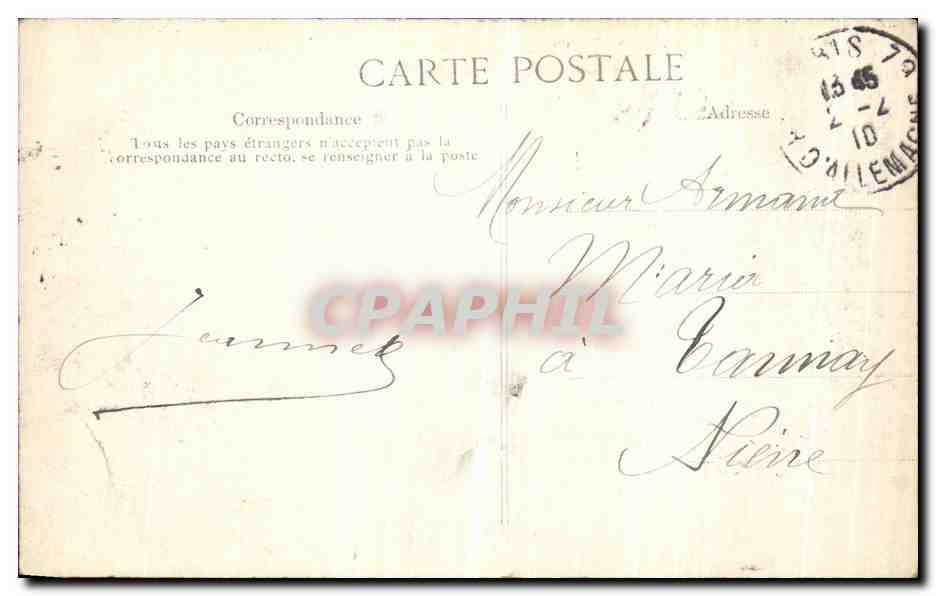 CARTE POSTALE
Correspondance
Tous les pays étrangers n'acceptent pas la
correspondance au recto, se renseigner à la poste
Adresse
RIS 19
13 45
2 - 2
10
D'ALLEMAGNE
Monsieur Armand
Marier
à Tannay
Nièvre
CPAPHIL